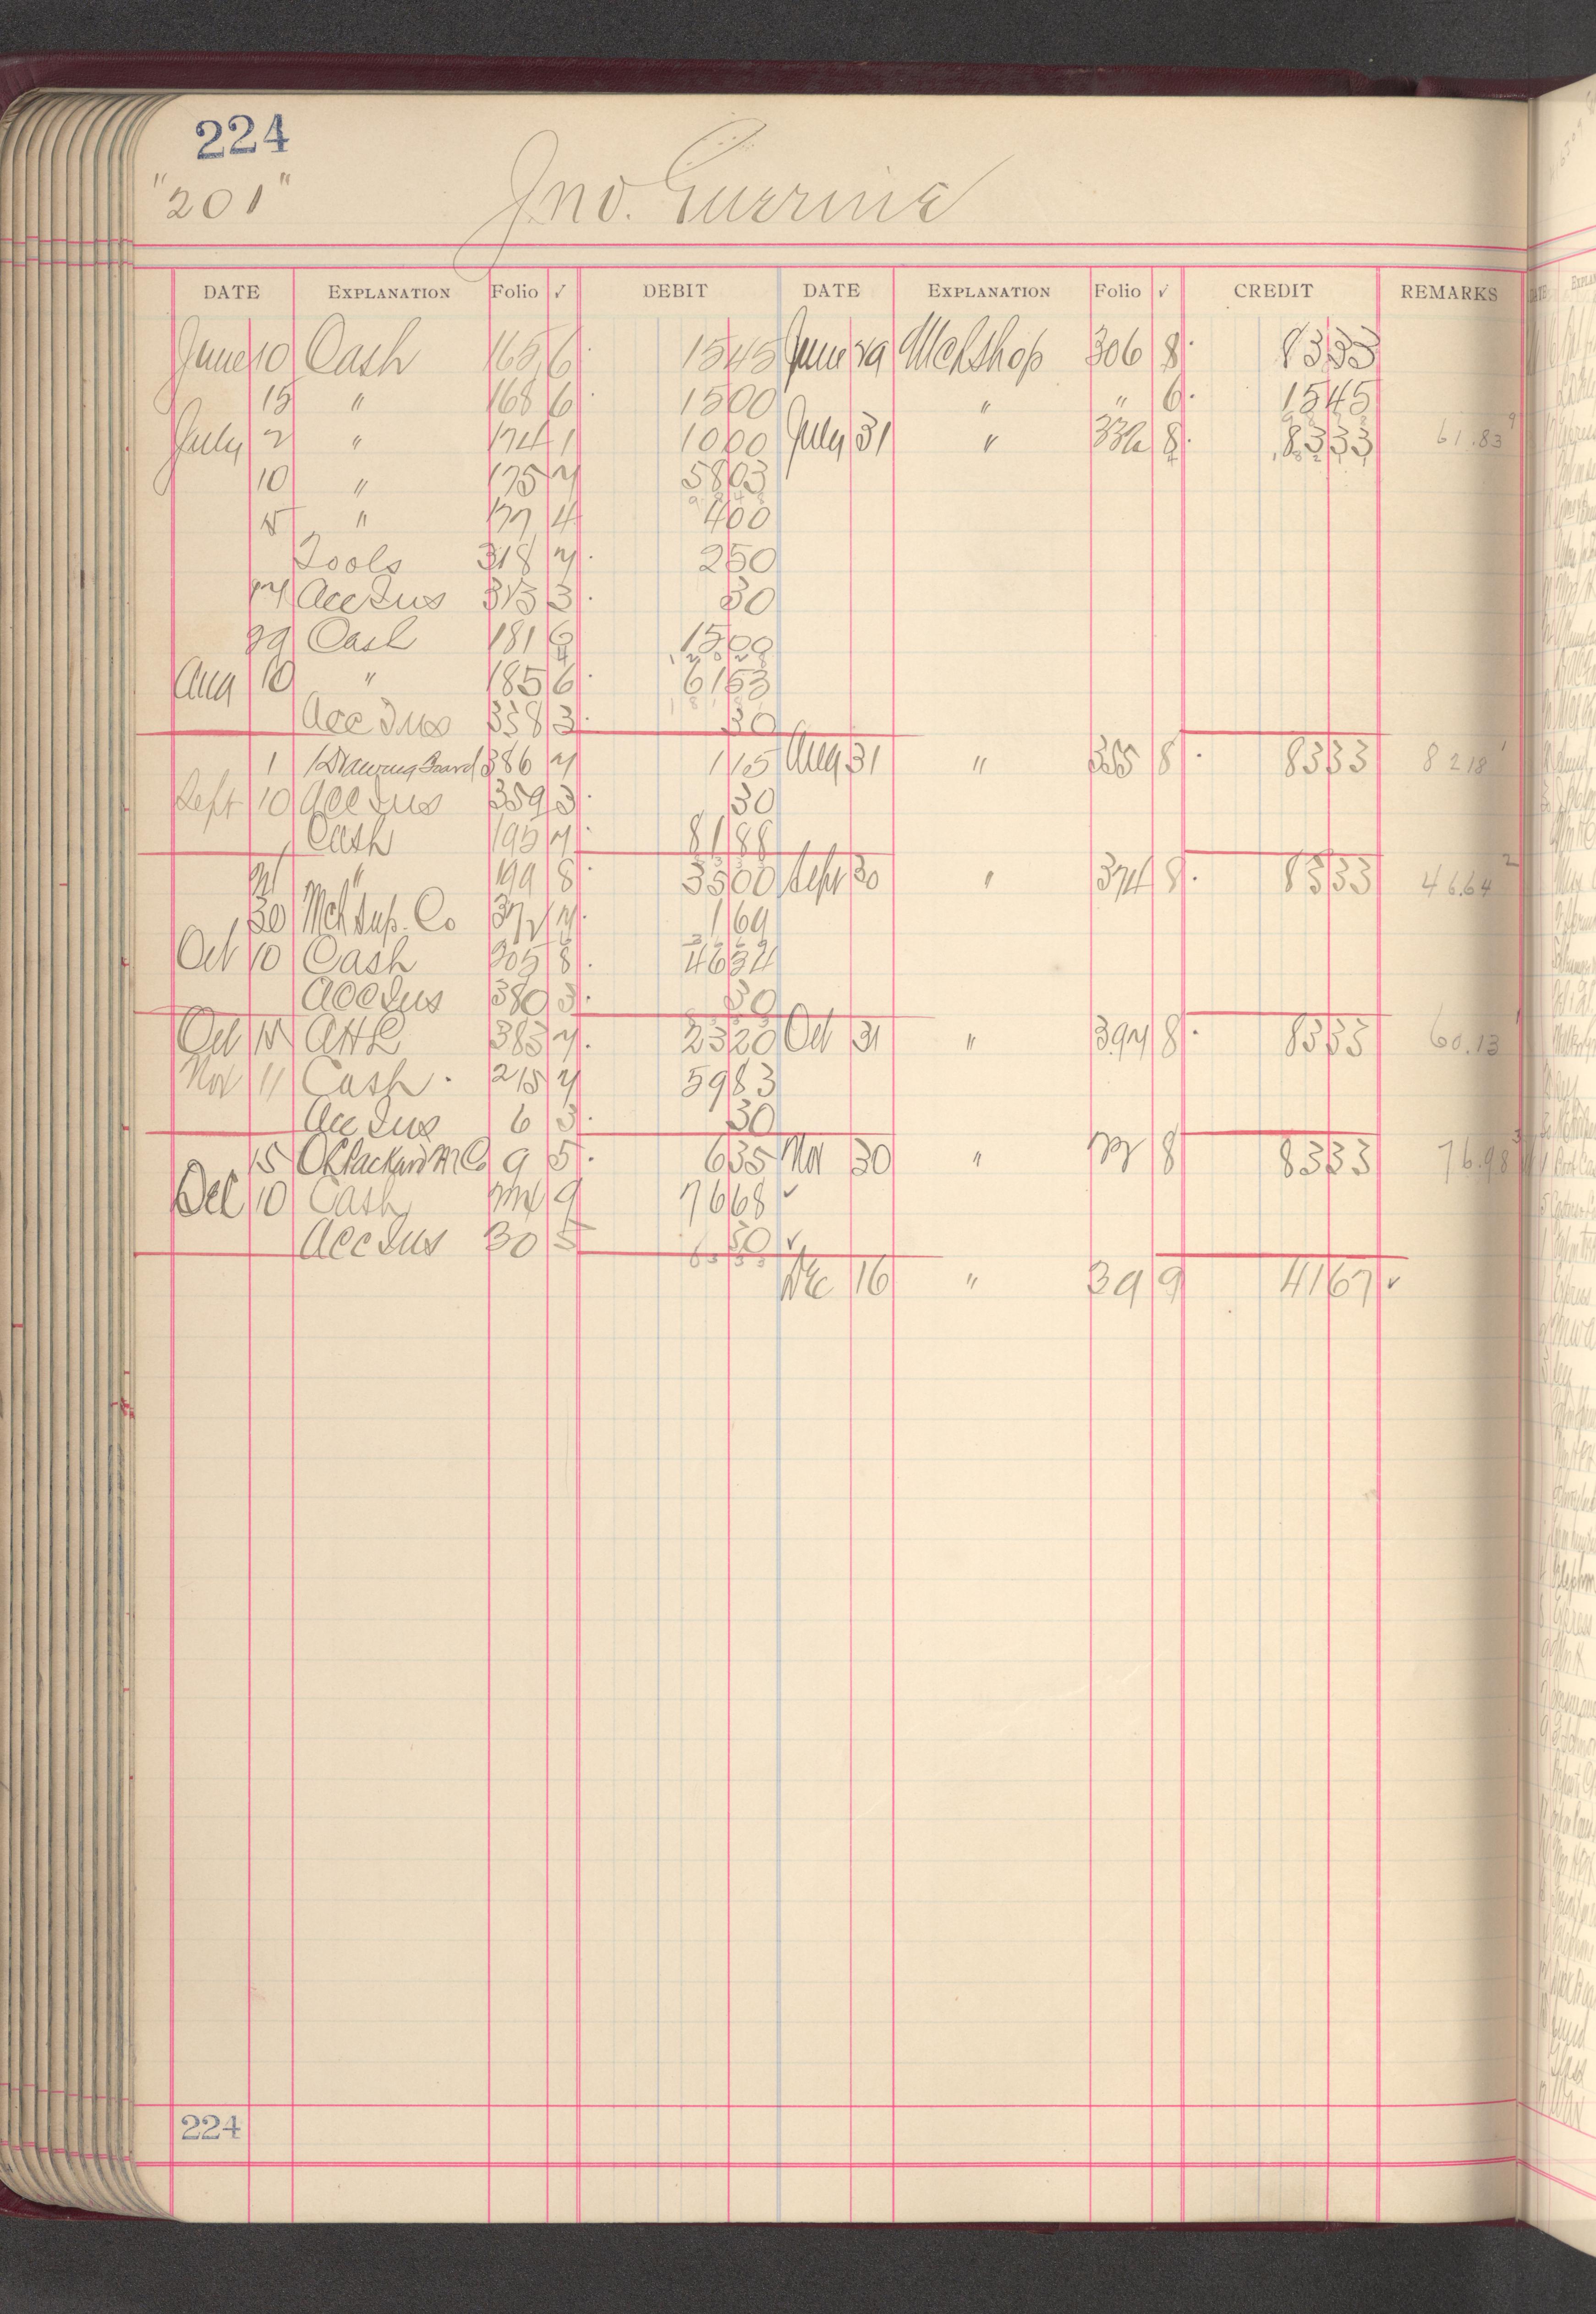 224
"201"
Jno. Guerrine
DATE EXPLANATION Folio √ DEBIT DATE EXPLANATION Folio √ CREDIT REMARKS
June 10 Cash 165 6 1545 June 29 Mch Shop 306 8 8333
15 " 168 6 1500 " " 6 1545
July 2 " 174 1 1000 July 31 " 336 8 8333 61.83
10 " 175 7 5803
15 " 177 4 400
Tools 318 7 250
Acc Ins 313 3 30
29 Cash 181 6 1500
Aug 10 " 185 6 6153
Acc Ins 358 3 30
1 1 Drawing Board 386 7 115 Aug 31 " 355 8 8333 8218
Sept 10 Acc Ins 359 3 30
Cash 195 7 8188
21 " 199 8 3500 Sept 30 " 374 8 8333 46.64
30 Mch Sup. Co 372 7 169
Oct 10 Cash 205 8 4634
Acc Ins 380 3 30
Oct 15 383 7 2320 Oct 31 " 397 8 8333 60.13
Nov 11 Cash 215 7 5983
Acc Ins 6 3 30
15 9 5 635 Nov 30 " 22 8 8333 76.98
Dec 10 Cash 9 7668 √
Acc Ins 30 5 30 √
Dec 16 " 39 9 4167 √
224